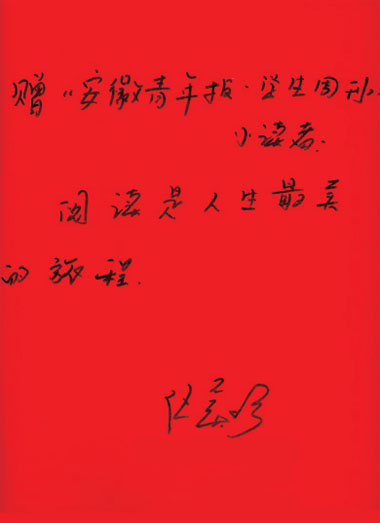 赠《安徽青年报·学生周刊》
小读者.
阅读是人生最美
的旅程.